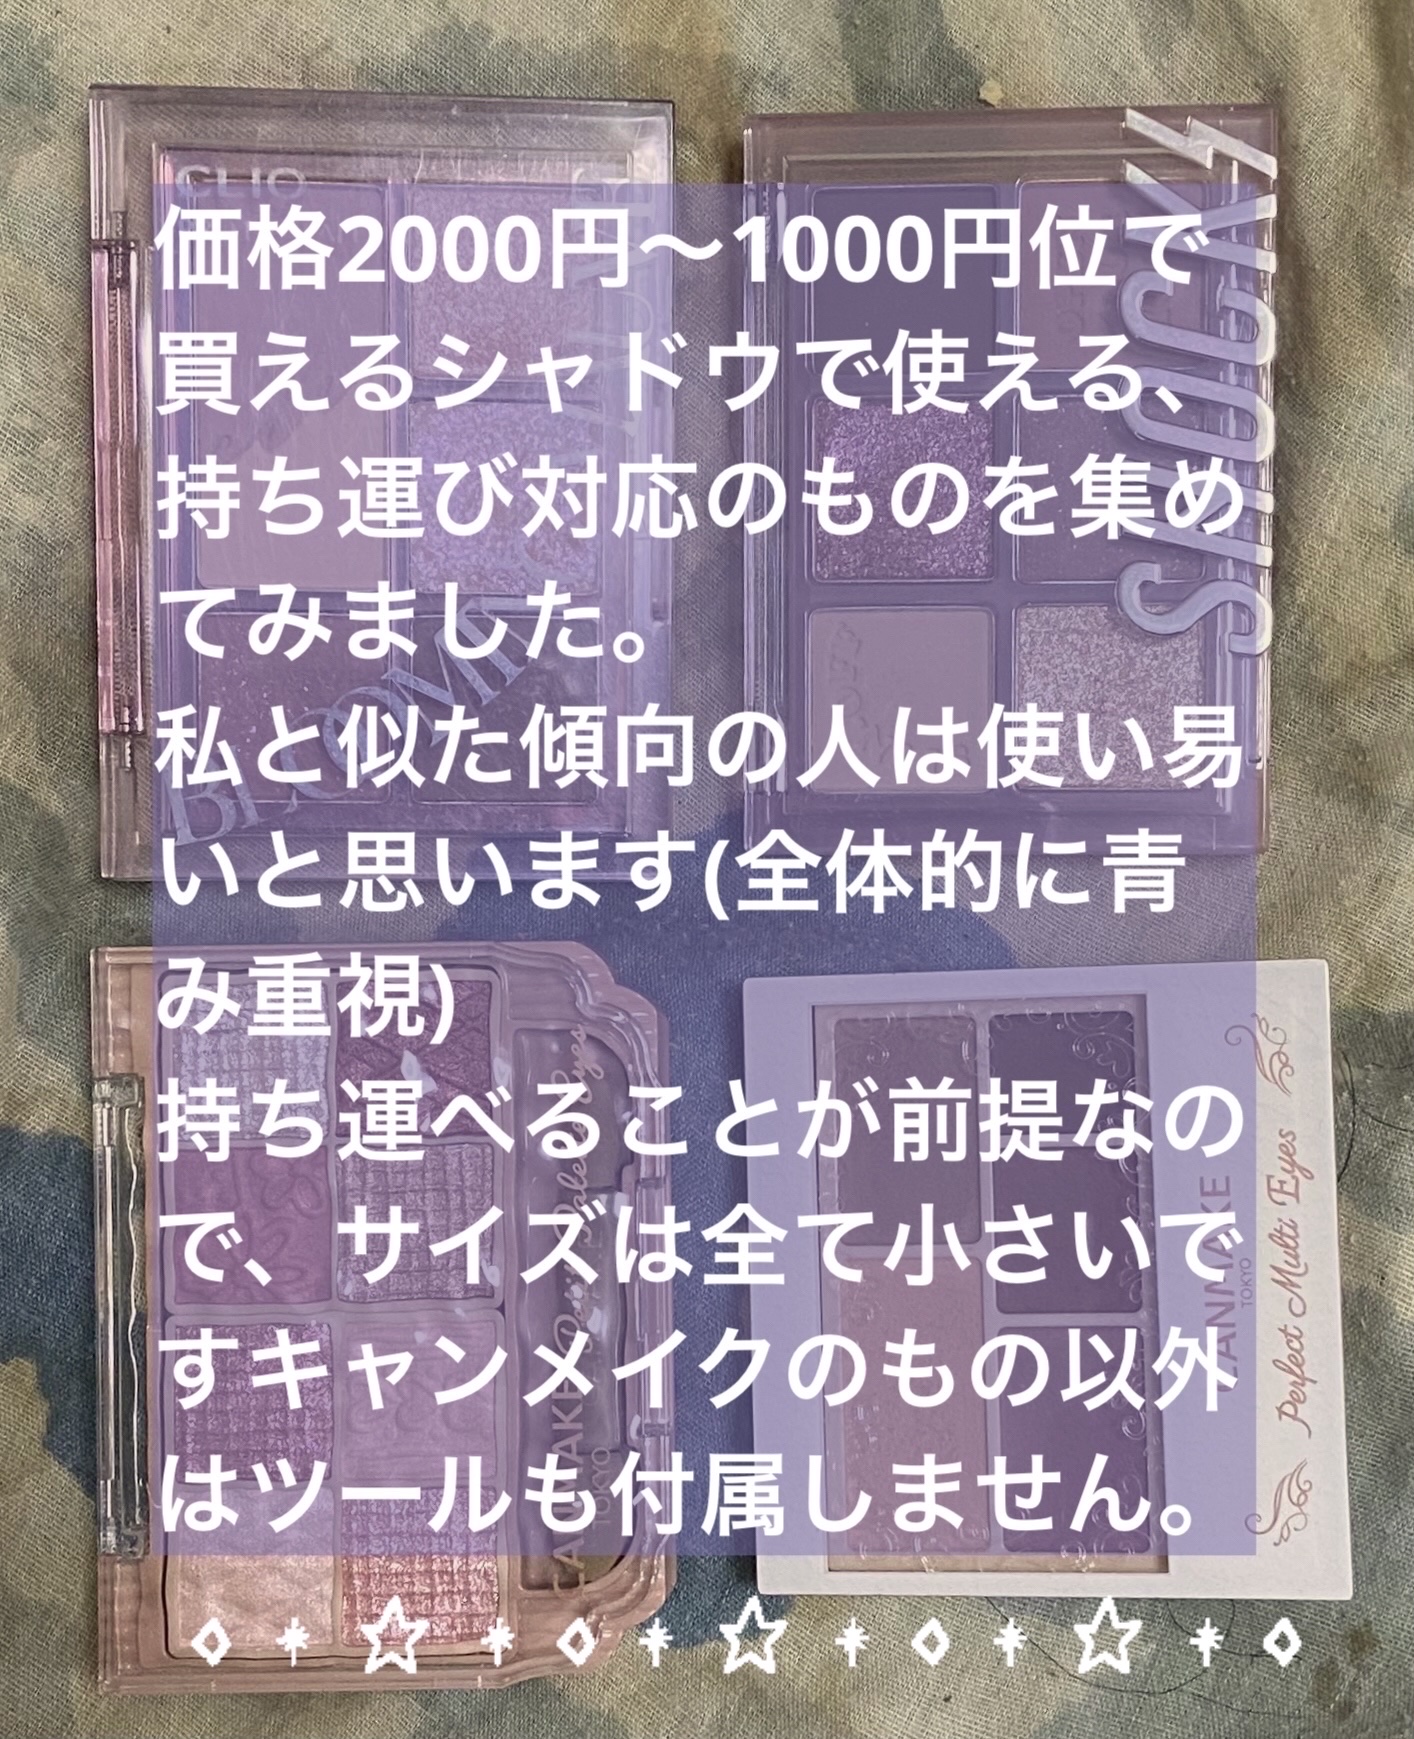 CLIO
SHOCK
価格2000円〜1000円位で
買えるシャドウで使える、
持ち運び対応のものを集め
てみました。
私と似た傾向の人は使い易
いと思います(全体的に青
み重視)
持ち運べることが前提なの
で、サイズは全て小さいで
すキャンメイクのもの以外
はツールも付属しません。
BLOOMIN
CANMAKE
TOKYO
CANMAKE
TOKYO
Perfect Multi Eyes